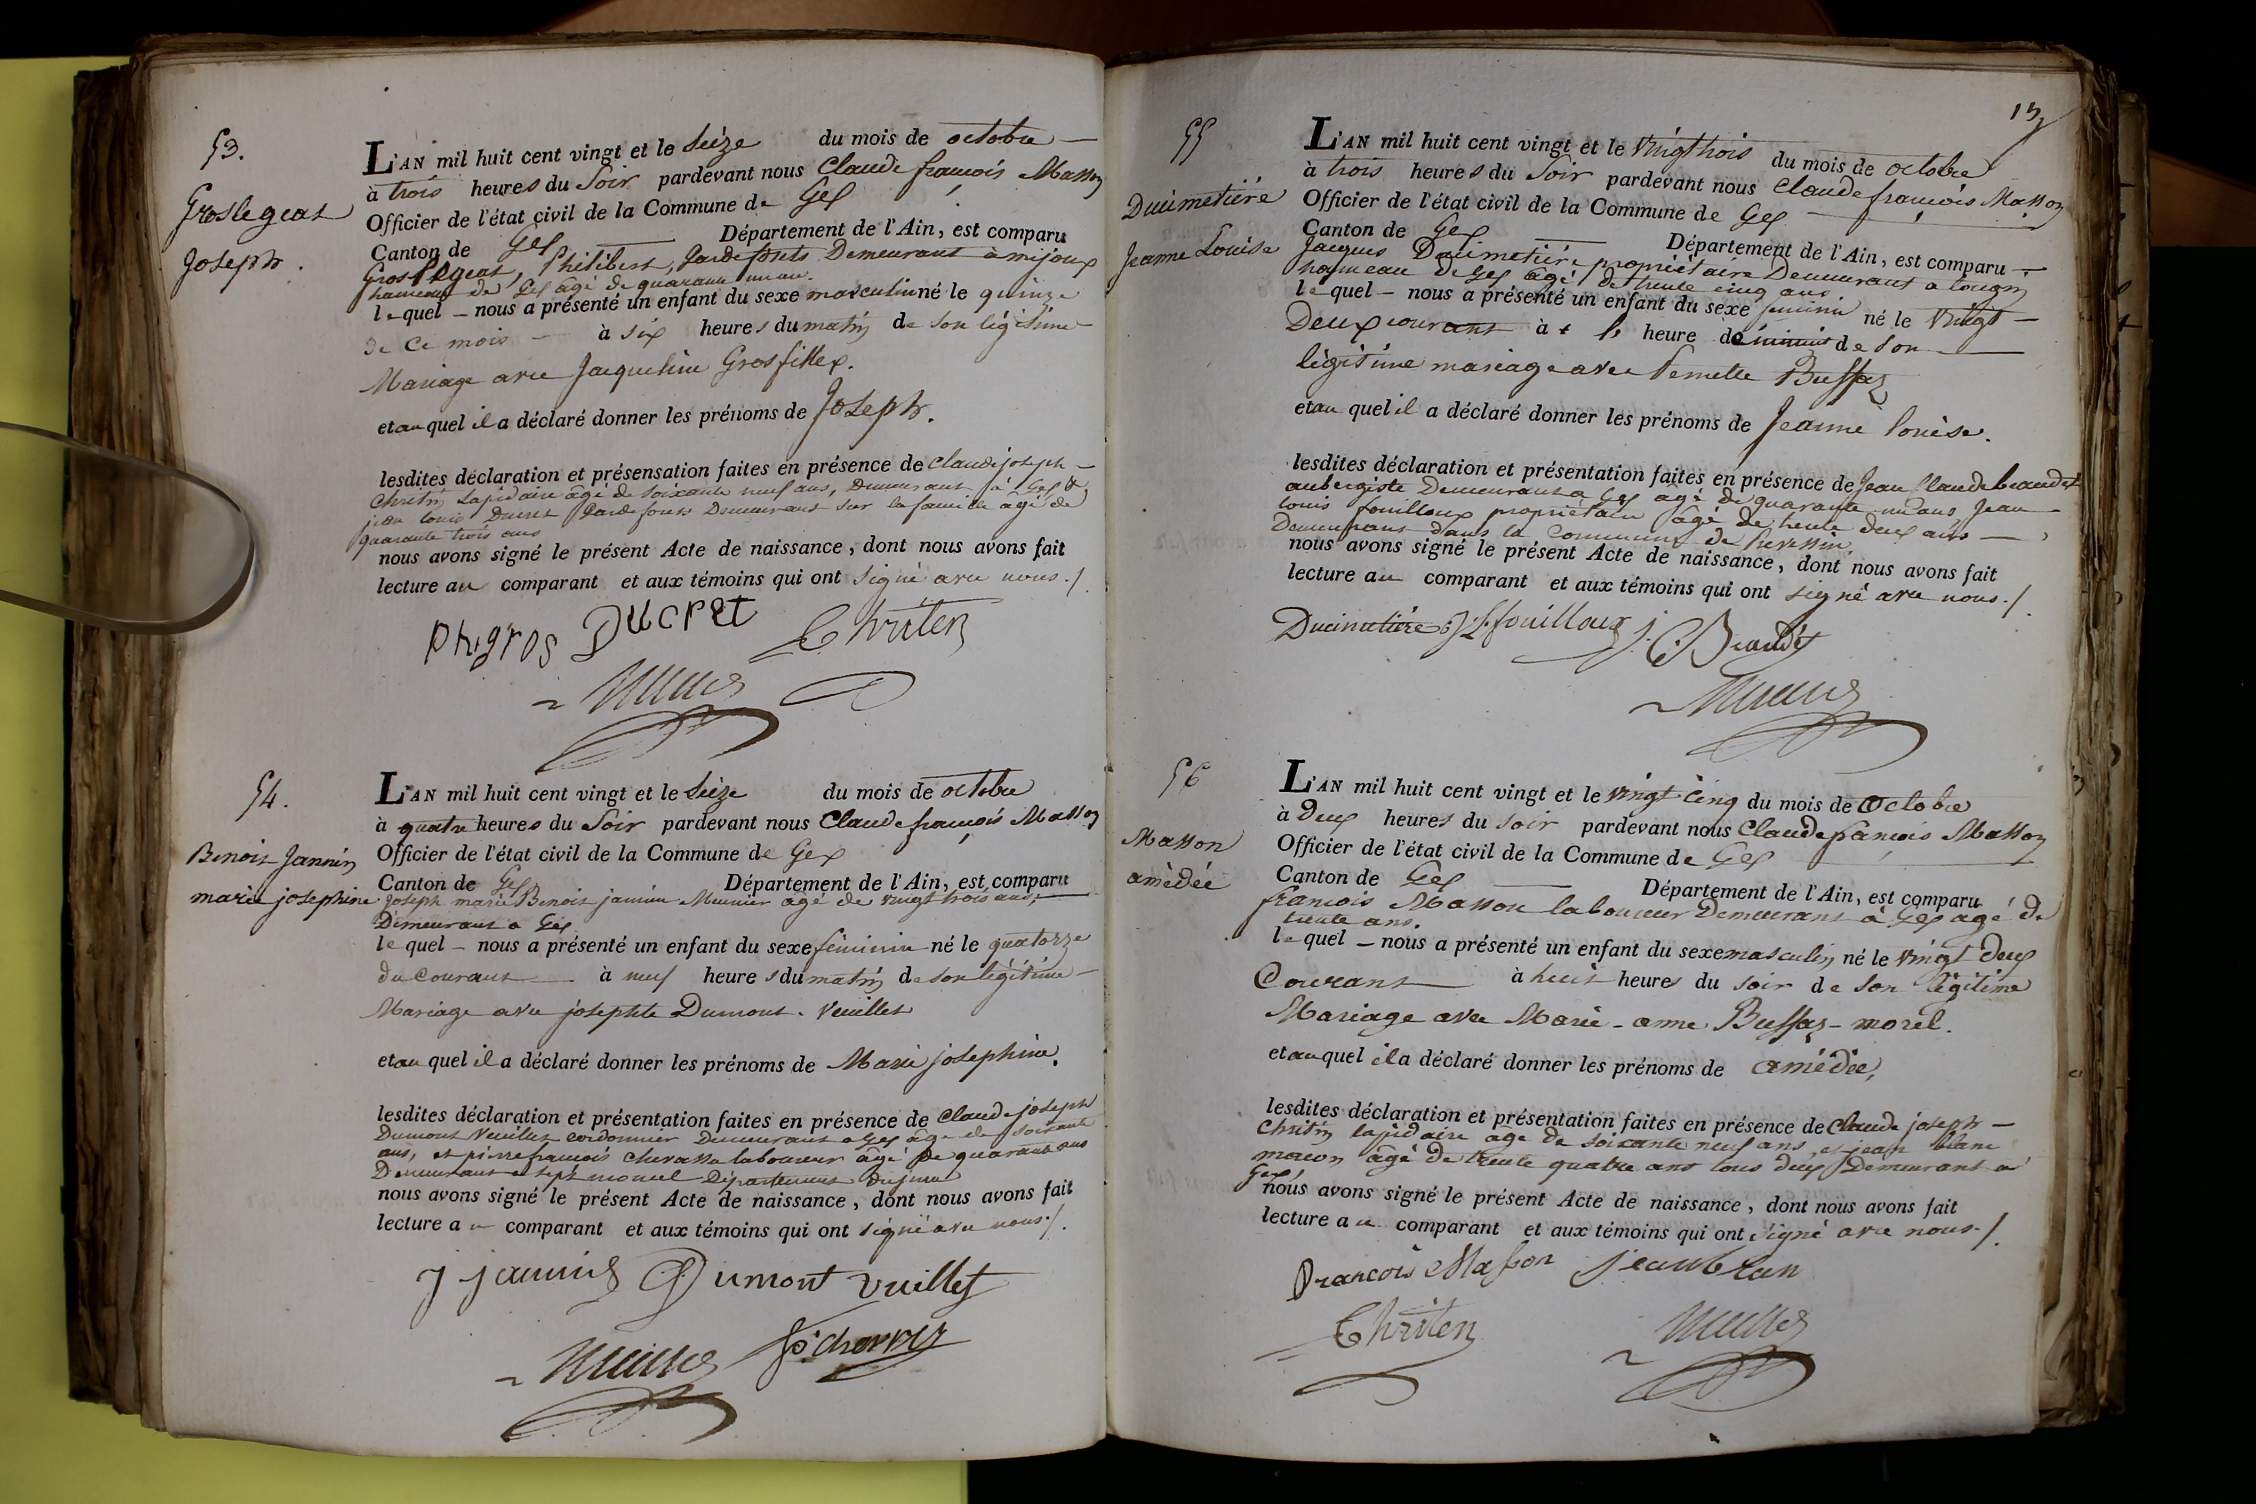 53.
Groslegeat
Joseph.
L'AN mil huit cent vingt et le Seize du mois de octobre
à trois heures du Soir pardevant nous Claude françois Masson
Officier de l'état civil de la Commune de Gex
Canton de Gex Département de l'Ain, est comparu
Groslégeat, Philibert, Garde forets Demeurant à mijoux
hameau de Gex âgé de quarante un an.
lequel nous a présenté un enfant du sexe masculin né le quinze
de ce mois à six heures du matin de son légitime
Mariage avec Jacqueline Grosfillex.
et au quel il a déclaré donner les prénoms de Joseph.
lesdites déclaration et présensation faites en présence de Claude joseph
Christin Lapidaire âgé de soixante neuf ans, Demeurant à Gex &
jean louis Ducret Garde forets Demeurant sur la faucille âgé de
quarante trois ans
nous avons signé le présent Acte de naissance, dont nous avons fait
lecture au comparant et aux témoins qui ont signé avec nous./.
phigros Ducret Christin
54.
Benoit Jannin
marie josephine
L'AN mil huit cent vingt et le Seize du mois de octobre
à quatre heures du Soir pardevant nous Claude françois Masson
Officier de l'état civil de la Commune de Gex
Canton de Gex Département de l'Ain, est comparu
Joseph marie Benoit jannin Meunier âgé de vingt trois ans,
Demeurant a Gex
lequel nous a présenté un enfant du sexe féminin né le quatorze
du Courant à neuf heures du matin de son légitime
Mariage avec josephte Dumont. Vuillet
et au quel il a déclaré donner les prénoms de Marie josephine.
lesdites déclaration et présentation faites en présence de Claude joseph
Dumont Vuillet cordonnier Demeurant a Gex âgé de soixante
ans, et pierre françois Chevassu laboureur âgé de quarante ans
Demeurant a sept moncel Département du jura
nous avons signé le présent Acte de naissance, dont nous avons fait
lecture au comparant et aux témoins qui ont signé avec nous./.
J jannin Dumont vuillet
13
55
Ducimetière
Jeanne Louise
L'AN mil huit cent vingt et le vingt trois du mois de octobre
à trois heures du Soir pardevant nous Claude françois Masson
Officier de l'état civil de la Commune de Gex
Canton de Gex Département de l'Ain, est comparu
Jacques Ducimetière propriétaire Demeurant a
hameau de Gex âgé de trente cinq ans
lequel nous a présenté un enfant du sexe féminin né le vingt
Deux courant à heure de minuit de son
légitime mariage avec Pernette Buffaz
et au quel il a déclaré donner les prénoms de Jeanne louise.
lesdites déclaration et présentation faites en présence de Jean Claude beaudet
aubergiste Demeurant a Gex âgé de quarante un ans Jean
louis fouilloux propriétaire âgé de trente deux ans
Demeurant dans la Commune de Prevessin
nous avons signé le présent Acte de naissance, dont nous avons fait
lecture au comparant et aux témoins qui ont signé avec nous./.
Ducimetière J L fouilloux
56
Masson
amédée
L'AN mil huit cent vingt et le vingt cinq du mois de Octobre
à Deux heures du soir pardevant nous Claude françois Masson
Officier de l'état civil de la Commune de Gex
Canton de Gex Département de l'Ain, est comparu
françois Masson laboureur Demeurant à Gex agé de
trente ans.
lequel nous a présenté un enfant du sexe masculin né le vingt deux
Courant à huit heures du soir de son légitime
Mariage avec Marie-anne Buffaz-morel.
et au quel il a déclaré donner les prénoms de amédée,
lesdites déclaration et présentation faites en présence de Claude joseph
Christin lapidaire âgé de soixante neuf ans, et jean blanc
maçon âgé de trente quatre ans tous deux Demeurant a
Gex,
nous avons signé le présent Acte de naissance, dont nous avons fait
lecture au comparant et aux témoins qui ont signé avec nous./.
francois Masson jean blan
Christin